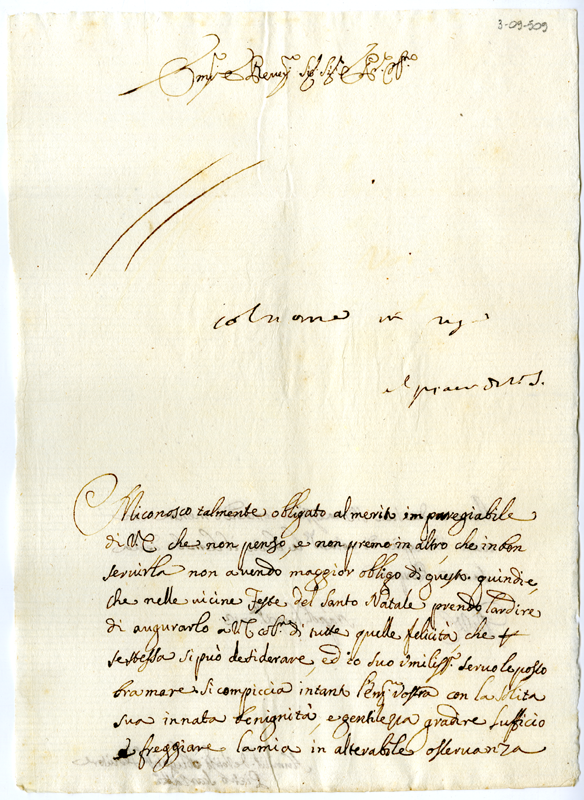 3-09-509
Em.mo e Rever.mo Sig.r Sig.r e P.ron Oss.mo
col nome in
Mi conosco talmente obligato al merito imparegiabile
di V.E. che non penso, e non premo in altro, che in ben
servirla non avendo maggior obligo di questo. quindi è,
che nelle vicine Feste del Santo Natale prendo l'ardire
di augurarlo à V.E. di tutte quelle felicità, che
se stessa si può desiderare, ed io suo umiliss.o servo le posso
bramare si compiaccia intant l'Em.za vostra con la solita
sua innata benignità, e gentilessa gradire l'ufficio
è freggiare la mia in alterabile osservanza